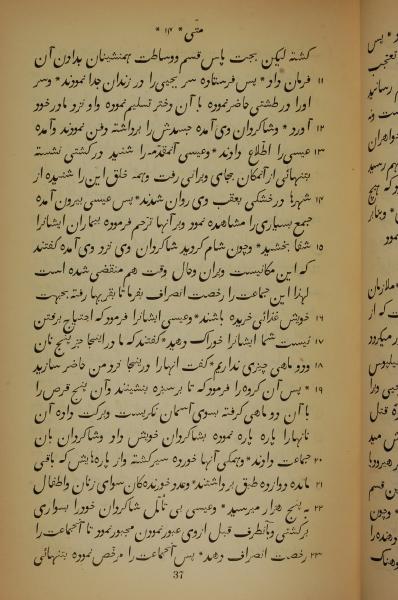 متی * ۱۴ *
کشته لیکن بجهت پاس قسم ووساطت همنشینان بدادن آن
۱۱ فرمان داد * پس فرستاده سر یحیی را در زندان جدا نمودند * وسر
اورا در طشتی حاضر نموده با آن دختر تسلیم نموده واو نزد مادر خود
۱۲ آورد * وشاکردان وی آمده جسدش را برداشته ودفن نمودند وآمده
۱۳ عیسی را اطلاع دادند * وعیسی آنمقدّمه را شنید در کشتی نشسته
بتنهائی از آنمکان بجای ویرانی رفت وهمه خلق این را شنیده از
۱۴ شهرها در خشکی بعقب وی روان شدند * پس عیسی بیرون آمده
جمع بسیاری را مشاهده نمود وبر آنها ترحم فرموده بیماران ایشانرا
۱۵ شفا بخشید * وچون شام کردید شاکردان وی نزد وی آمده کفتند
که این مکانیست ویران وحال وقت هم منقضی شده است
لهذا این جماعت را رخصت انصراف بفرما تا بقریها رفته بجهت
۱۶ خویش غذائی خریده باشند * وعیسی ایشانرا فرمود که احتیاج برفتن
۱۷ نیست شما ایشانرا خوراک دهید * کفتند که ما در اینجا جز پنج نان
۱۸ ودو ماهی چیزی نداریم * کفت آنهارا در اینجا نزد من حاضر سازید
۱۹ * پس آن کروه را فرمود که تا بر سبزه بنشینند وآن پنج قرص را
با آن دو ماهی کرفته بسوی آسمان نکریست وبرکت داده آن
نانهارا پاره پاره نموده بشاکردان خویش داد وشاکردان بان
۲۰ جماعت دادند * وهمکی آنها خورده سیر کشته واز پارهایش که باقی
۲۱ مانده دوازده طبق برداشتند * وعدد خورنده‌کان سوای زنان واطفال
۲۲ به پنج هزار میرسید * وعیسی بی تأمّل شاکردان خودرا بسواری
بر کشتی وبآنطرف قبل از وی عبور نمودن مجبور نمود تا آنجماعت را
۲۳ رخصت انصراف دهد * پس آنجماعت را مرخص نموده بتنهائی
37